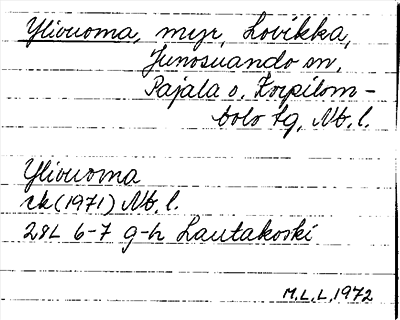 Ylivuoma, myr, Lovikka,
Junosuando sn,
Pajala o. Korpilom-
bolo tg, Nb. l.
Ylivuoma
ek (1971) Nb. l.
28L 6-7 g-h Lautakoski
M.L.L. 1972